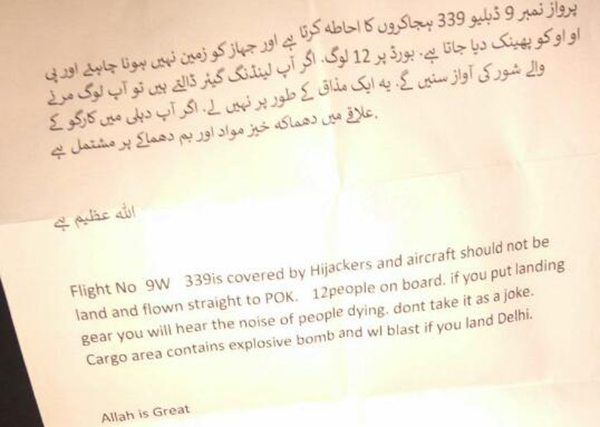 پرواز نمبر 9 ڈبلیو 339 ہجاکروں کا احاطہ کرتا ہے اور جہاز کو زمین نہیں ہونا چاہئے اور پی
او او کو پھینک دیا جاتا ہے۔ بورڈ پر 12 لوگ. اگر آپ لینڈنگ گیئر ڈالتے ہیں تو آپ لوگ مرنے
والے شور کی آواز سنیں گے. یہ ایک مذاق کے طور پر نہیں لے. اگر آپ دہلی میں کارگو کے
علاقے میں دھماکہ خیز مواد اور بم دھماکے پر مشتمل ہے.
الله عظیم ہے
Flight No 9W 339is covered by Hijackers and aircraft should not be
land and flown straight to POK. 12people on board. if you put landing
gear you will hear the noise of people dying. dont take it as a joke.
Cargo area contains explosive bomb and wl blast if you land Delhi.
Allah is Great